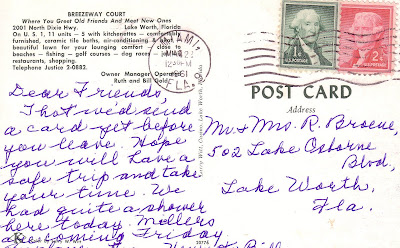 BREEZEWAY COURT
Where You Greet Old Friends And Meet New Ones
2001 North Dixie Hwy. Lake Worth, Florida
On U. S. 1, 11 units - 5 with kitchenettes - comfortably
furnished, ceramic tile baths, air-conditioning
beautiful lawn for your lounging comfort - close to
beaches - fishing - golf courses - dog races
restaurants, shopping.
Telephone Justice 2-0882.
Owner Manager Operators
Ruth and Bill
MIAMI
MAR 23
12 PM
1961
FLA.
U.S. POSTAGE
2¢
U.S. POSTAGE
POST CARD
Address
Dear Friends,
That we'd send
a card yet before
you leave. Hope
you will have a
safe trip and take
your time. We
had quite a shower
here today. Millers
are coming Friday
Bill
Mr & Mrs. R. Broene,
502 Lake Osborne
Blvd,
Lake Worth,
Fla.